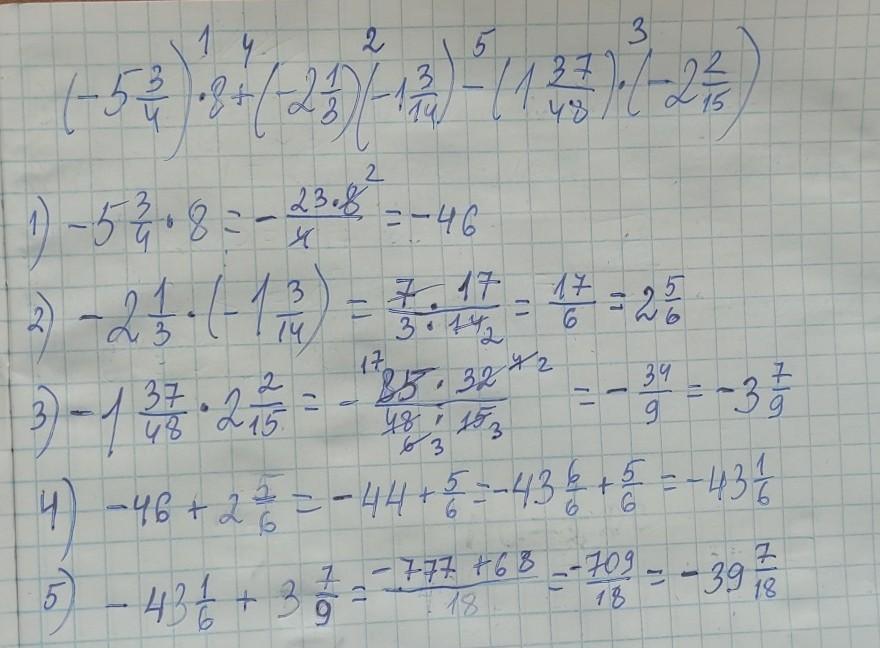 1 4 2 5 3
(-5 3/4) · 8 + (-2 1/3)(-1 3/14) - (1 37/48) · (-2 2/15)
1) -5 3/4 · 8 = - 23·8 2/4 = -46
2) -2 1/3 · (-1 3/14) = 7 · 17/3 · 14 2 = 17/6 = 2 5/6
3) -1 37/48 · 2 2/15 = - 17 85 · 32 4 2/48 6 3 · 15 3 = - 34/9 = -3 7/9
4) -46 + 2 5/6 = -44 + 5/6 = -43 6/6 + 5/6 = -43 1/6
5) -43 1/6 + 3 7/9 = -777 + 68/18 = -709/18 = -39 7/18